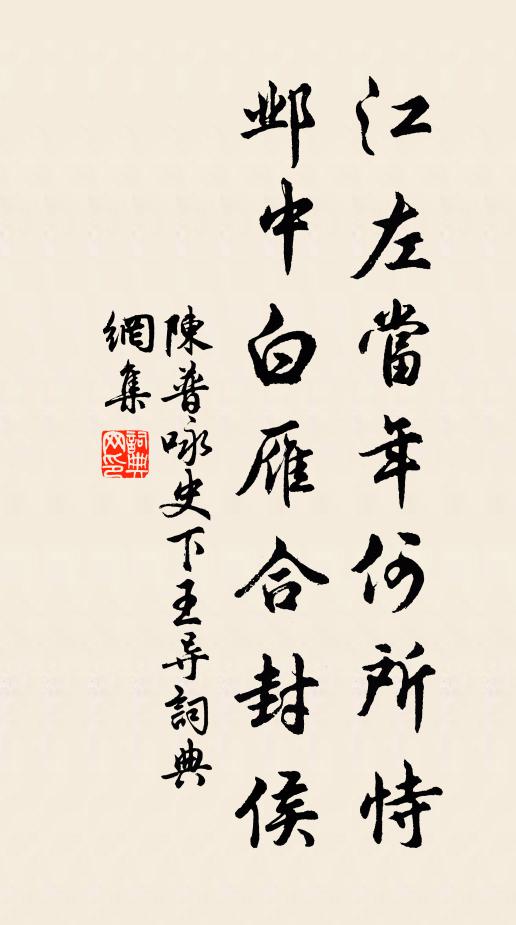 江左當年何所恃
邺中白雁合封侯
陳普咏史下王导詞典
網集
詞典网印